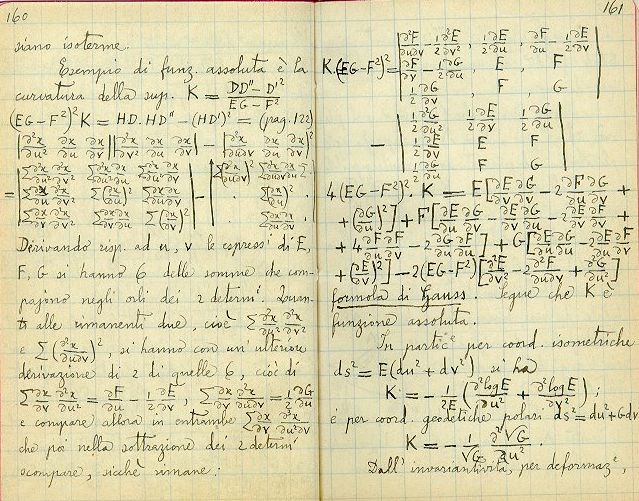 160
siano isoterme.
Esempio di funz. assoluta è la
curvatura della sup. K = (DD''-D'²)/(EG-F²)
(EG-F²)²K = HD.HD''-(HD')² = (pag. 122)
|∂²x/∂u² ∂x/∂u ∂x/∂v| |∂²x/∂v² ∂x/∂u ∂x/∂v| - |∂²x/∂u∂v ∂x/∂u ∂x/∂v|²
= |Σ∂²x/∂u² ∂²x/∂v² Σ∂²x/∂u² ∂x/∂u Σ∂²x/∂u² ∂x/∂v|
Derivando risp. ad u, v le espressi di E,
F, G si hanno 6 delle somme che com-
pajono negli orli dei 2 determi. Quan-
ti alle rimanenti due, cioè Σ ∂²x/∂u² ∂²x/∂v²
e Σ(∂²x/∂u∂v)², si hanno con un'ulteriore
derivazione di 2 di quelle 6, cioè di
Σ ∂x/∂v ∂²x/∂u² = ∂F/∂u - 1/2 ∂E/∂v, Σ ∂x/∂v ∂²x/∂u∂v = 1/2 ∂G/∂u
e compare allora in entrambe Σ ∂x/∂v
che poi nella sottrazione dei 2 determi
scompare, sicchè rimane:
161
K.(EG-F²)² = |∂²F/∂u∂v - 1/2 ∂²E/∂v², 1/2 ∂E/∂u, ∂F/∂u - 1/2 ∂E/∂v|
|∂F/∂v - 1/2 ∂G/∂u, E, F|
|1/2 ∂G/∂v, F, G|
- |1/2 ∂²G/∂u² 1/2 ∂E/∂v 1/2 ∂G/∂u|
|1/2 ∂E/∂v E F|
|1/2 ∂G/∂u F G|
4(EG-F²)². K = E[∂E/∂v ∂G/∂v - 2 ∂F/∂u ∂G/∂v +
+ (∂G/∂u)²] + F[∂E/∂u ∂G/∂v - ∂E/∂v ∂G/∂u - 2 ∂E/∂v ∂F/∂v +
+ 4 ∂F/∂u ∂F/∂v - 2 ∂G/∂u ∂F/∂u] + G[∂E/∂u ∂G/∂u - 2 ∂E/∂u ∂F/∂v
+ (∂E/∂v)²] - 2(EG-F²)[∂²E/∂v² - 2 ∂²F/∂u∂v + ∂²G/∂u²]
formola di Gauss. Segue che K è
funzione assoluta.
In partice per coord. isometriche
ds² = E(du²+dv²) si ha
K = - 1/2E (∂²logE/∂u² + ∂²logE/∂v²);
e per coord. geodetiche polari ds² = du²+Gdv
K = - 1/√G ∂²√G/∂u².
Dall'invariantività, per deformaze,